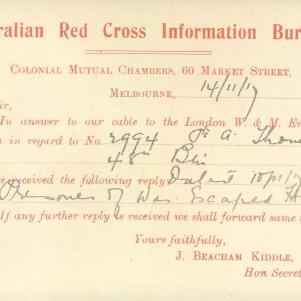 ralian Red Cross Information Bur
Colonial Mutual Chambers, 60 Market Street,
Melbourne, 14/11/17
ir,
In answer to our cable to the London W. & M. En
n in regard to No. 2994 A.
48th Bn
e received the following reply Dated 10/11/17
Prisoner of War. Escaped
If any further reply is received we shall forward same
Yours faithfully,
J. BEACHAM KIDDLE,
Hon Secret